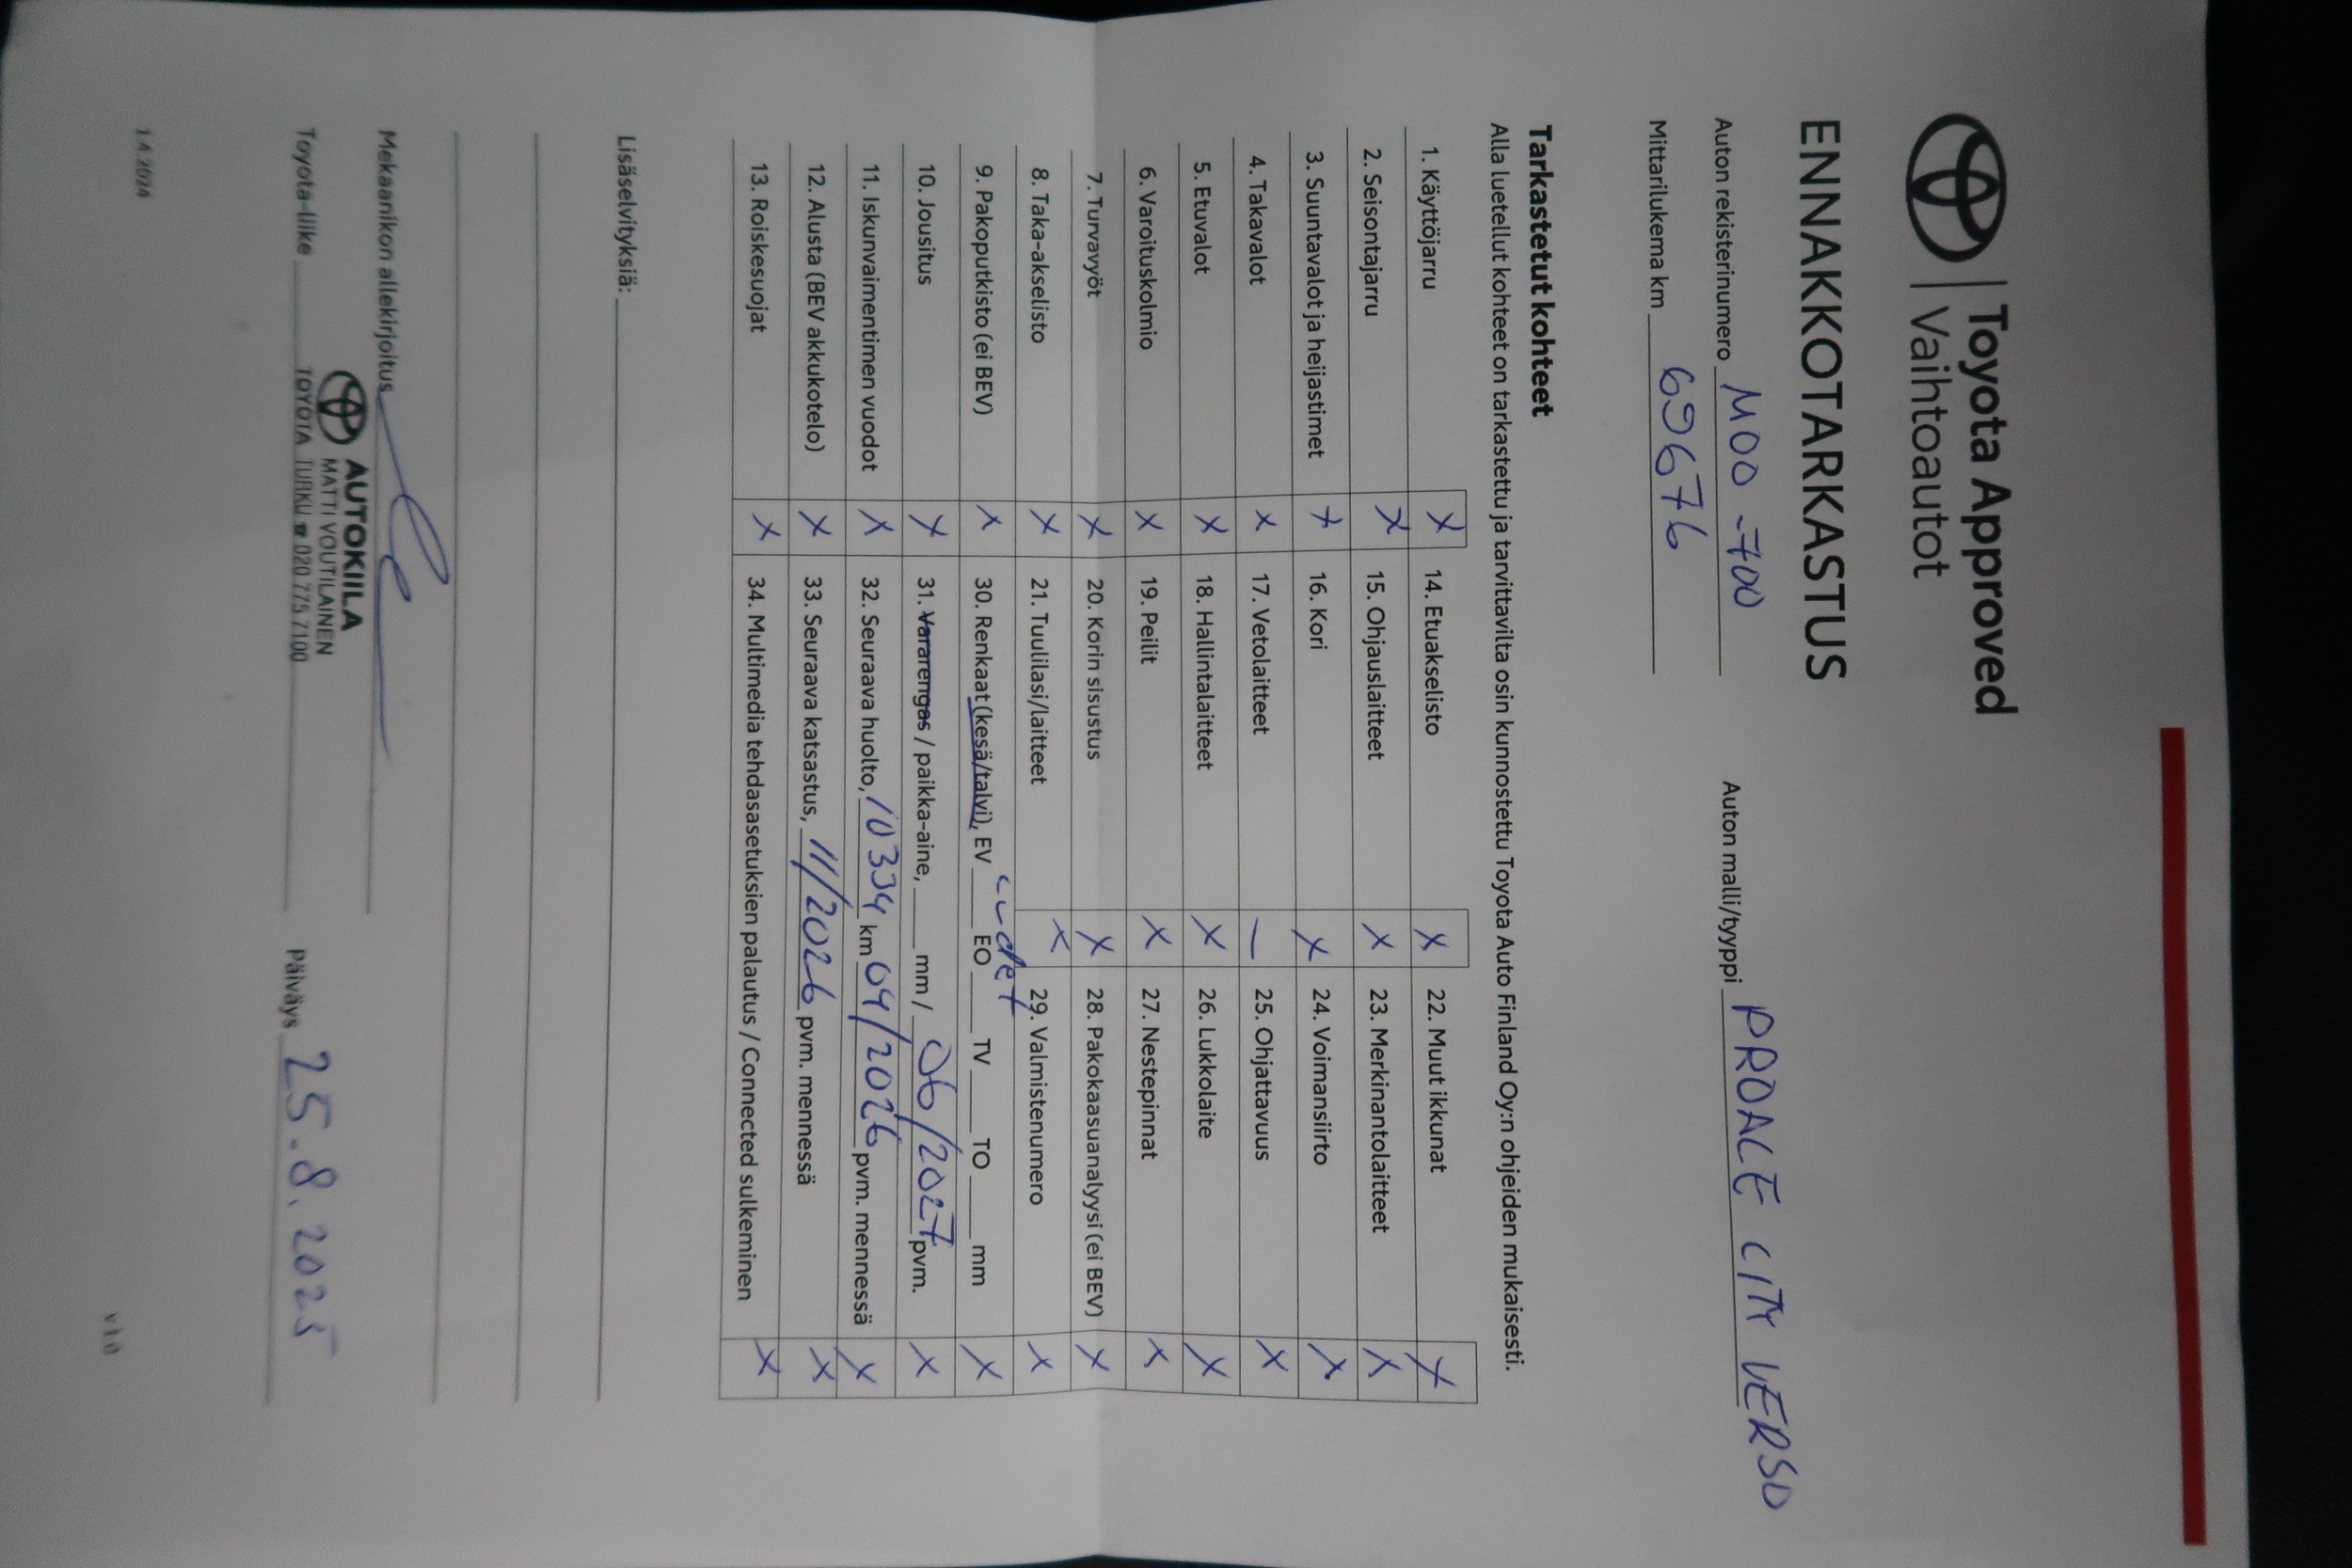 Toyota Approved
Vaihtoautot
ENNAKKOTARKASTUS
Auton rekisterinumero MOO-700 Auton malli/tyyppi PROACE CITY VERSO
Mittarilukema km 69676
Tarkastetut kohteet
Alla luetellut kohteet on tarkastettu ja tarvittavilta osin kunnostettu Toyota Auto Finland Oy:n ohjeiden mukaisesti.
1. Käyttöjarru X 14. Etuakselisto X 22. Muut ikkunat X
2. Seisontajarru X 15. Ohjauslaitteet X 23. Merkinantolaitteet X
3. Suuntavalot ja heijastimet X 16. Kori X 24. Voimansiirto X
4. Takavalot X 17. Vetolaitteet – 25. Ohjattavuus X
5. Etuvalot X 18. Hallintalaitteet X 26. Lukkolaite X
6. Varoituskolmio X 19. Peilit X 27. Nestepinnat X
7. Turvavyöt X 20. Korin sisustus X 28. Pakokaasuanalyysi (ei BEV) X
8. Taka-akselisto X 21. Tuulilasi/laitteet X 29. Valmistenumero X
9. Pakoputkisto (ei BEV) X 30. Renkaat (kesä/talvi), EV EO TV TO mm X
10. Jousitus X 31. Vararengas / paikka-aine, mm / 06/2027 pvm. X
11. Iskunvaimentimen vuodot X 32. Seuraava huolto, 10334 km 04/2026 pvm. mennessä X
12. Alusta (BEV akkukotelo) X 33. Seuraava katsastus, 11/2026 pvm. mennessä X
13. Roiskesuojat X 34. Multimedia tehdasasetuksien palautus / Connected sulkeminen X
Lisäselvityksiä:
Mekaanikon allekirjoitus
AUTOKIILA
MATTI VOUTILAINEN
Toyota-liike TOYOTA TURKU ☎ 020 775 7100 Päiväys 25.8.2025
1.4.2024 v 1.0